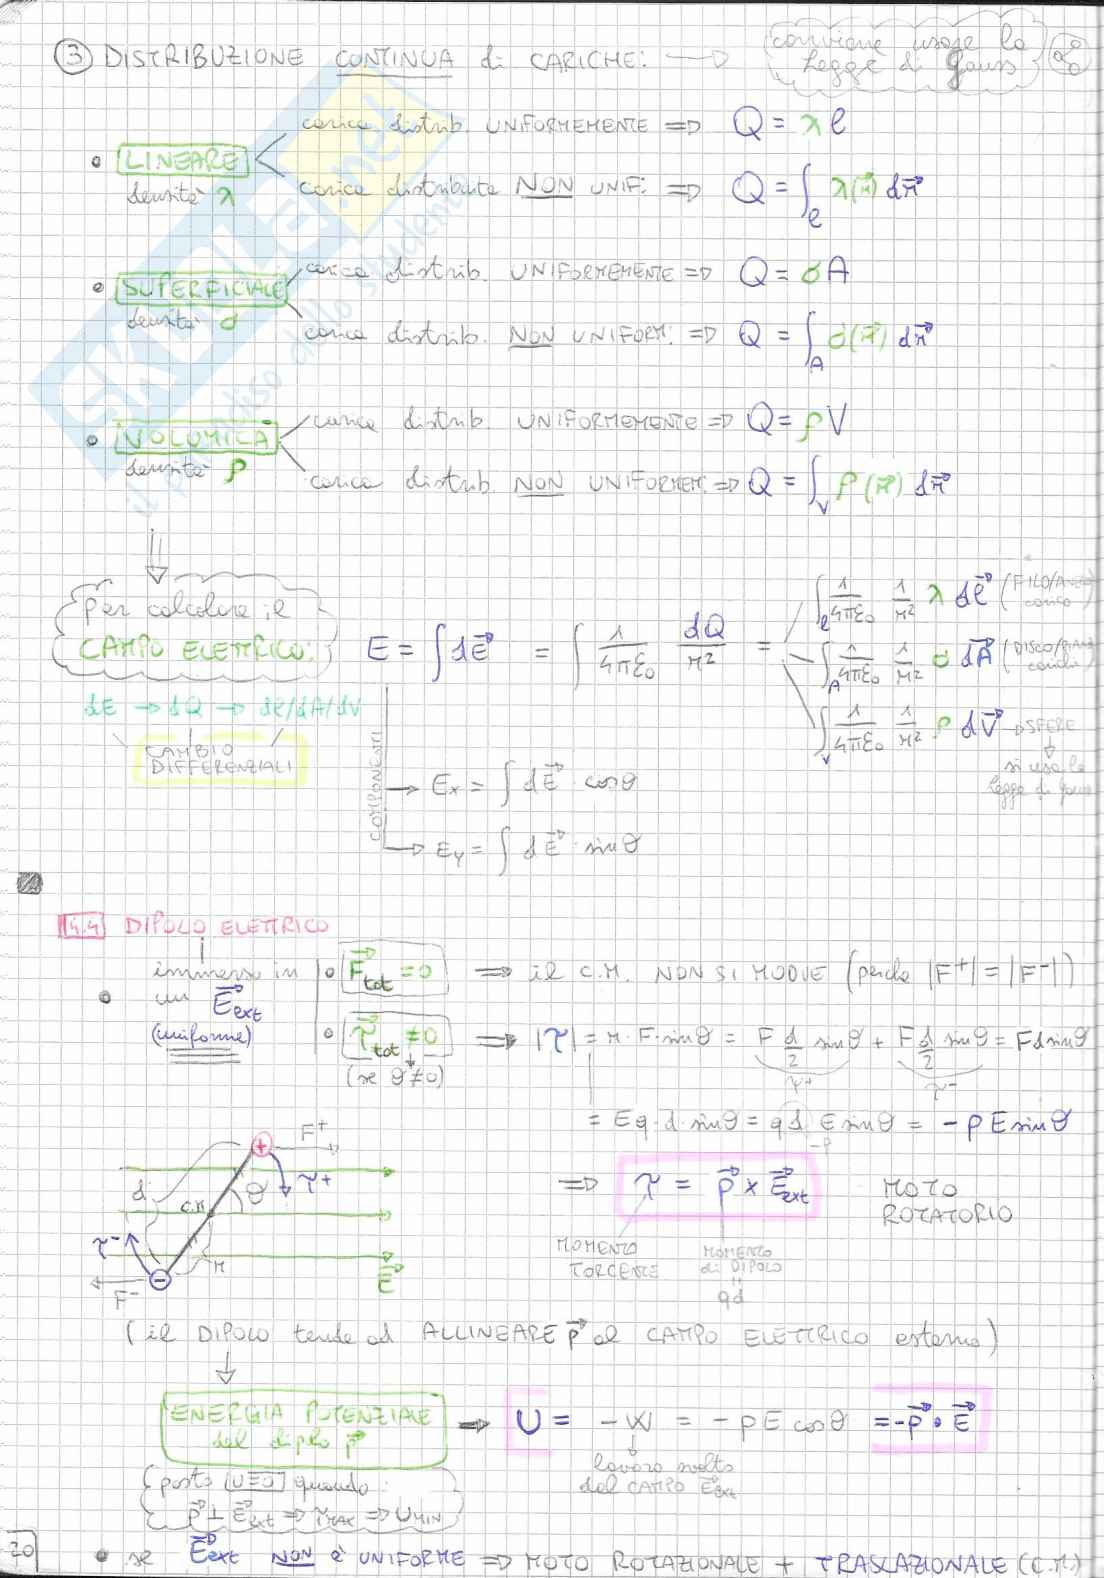 ③ DISTRIBUZIONE CONTINUA di CARICHE: → conviene usare la legge di Gauss
carica distrib. UNIFORMEMENTE ⇒ Q = λℓ
• LINEARE
densità λ
carica distribuita NON UNIF: ⇒ Q = ∫ℓ λ(r⃗) dr⃗
carica distrib. UNIFORMEMENTE ⇒ Q = σA
• SUPERFICIALE
densità σ
carica distrib. NON UNIFORM: ⇒ Q = ∫A σ(r⃗) dr⃗
carica distrib. UNIFORMEMENTE ⇒ Q = ρV
• VOLUMICA
densità ρ
carica distrib. NON UNIFORMEM: ⇒ Q = ∫V ρ(r⃗) dr⃗
SKUOLA.net
il paradiso dello studente
per calcolare il
CAMPO ELETTRICO:
E = ∫dE⃗ = ∫ 1/4πε₀ dQ/r² =
∫ℓ 1/4πε₀ 1/r² λ dℓ⃗ (FILO/
carico)
∫A 1/4πε₀ 1/r² σ dA⃗ (DISCO/
carichi
∫V 1/4πε₀ 1/r² ρ dV⃗ → SFERE
si usa la
legge di Gauss
dE → dQ → dℓ/dA/dV
CAMBIO
DIFFERENZIALI
COMPONENTI
→ Ex = ∫ dE⃗ · cosθ
→ Ey = ∫ dE⃗ · sinθ
4.4 DIPOLO ELETTRICO
• immerso in
un E⃗ext
(uniforme)
• F⃗tot = 0 ⇒ il C.M. NON SI MUOVE (perché |F⁺| = |F⁻|)
• τ⃗tot ≠ 0 ⇒ |τ| = r·F·sinθ = F d/2 sinθ + F d/2 sinθ = Fd sinθ
(se θ≠0)
τ⁺ τ⁻
= Eq·d·sinθ = qd E sinθ = -pE sinθ
-p
⇒ τ = p⃗ × E⃗ext MOTO
ROTATORIO
MOMENTO
TORCENTE
MOMENTO
di DIPOLO
=
qd
+ F⁺
τ⁺
d
θ
C.M
τ⁻
r
E⃗
−
F⁻
(il DIPOLO tende ad ALLINEARE p⃗ al CAMPO ELETTRICO esterno)
ENERGIA POTENZIALE
del dipolo p⃗
→ U = -W = -pE cosθ = -p⃗ • E⃗
lavoro svolto
del CAMPO E⃗ext
posto U=0 quando:
p⃗ ⊥ E⃗ext ⇒ τMAX ⇒ UMIN
20
• se E⃗ext NON è UNIFORME ⇒ MOTO ROTAZIONALE + TRASLAZIONALE (C.M.)